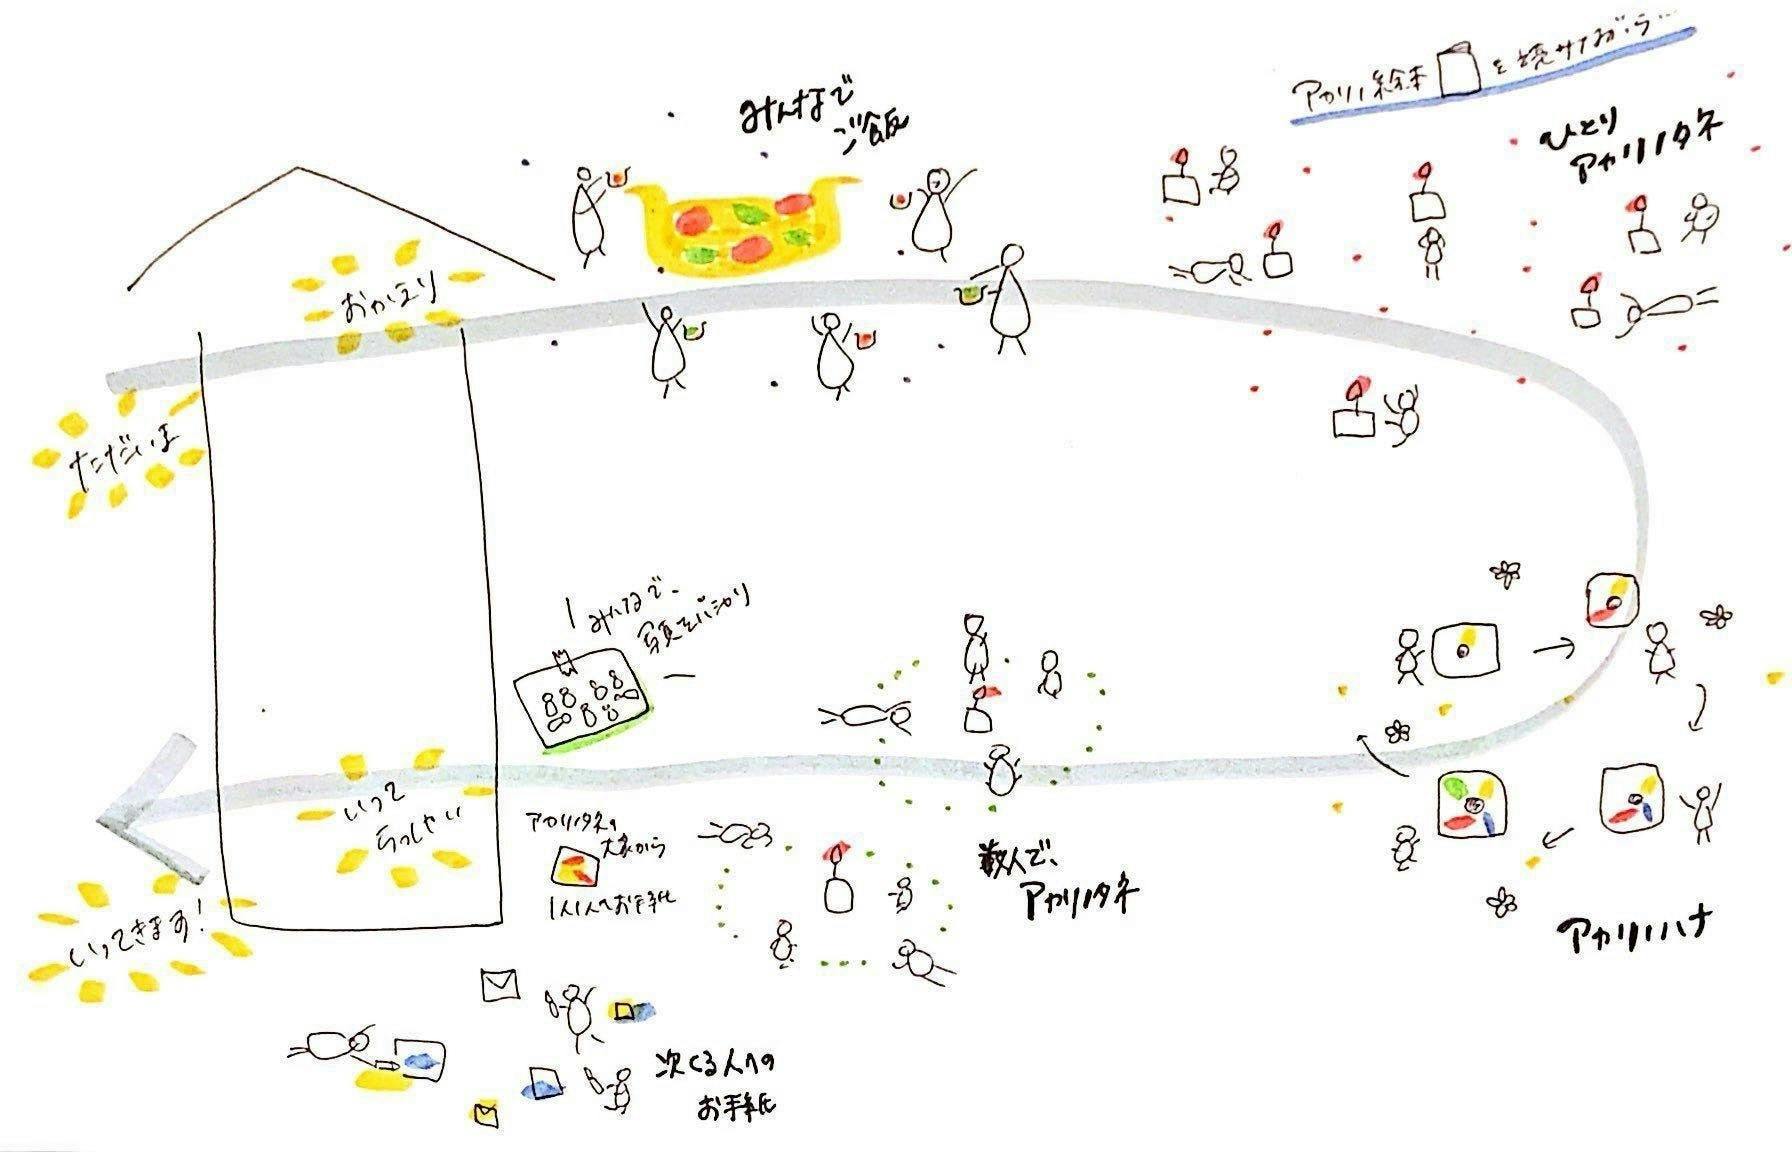 アカリノ絵本
を
みんなで
ご飯
ひとり
アカリノタネ
おかえり
ただいま
みんなで、
写真をパシャリ
いって
らっしゃい
いってきます!
アカリノタネの
大家から
1人1人へお手紙
数人で、
アカリノタネ
アカリノハナ
次くる人への
お手紙